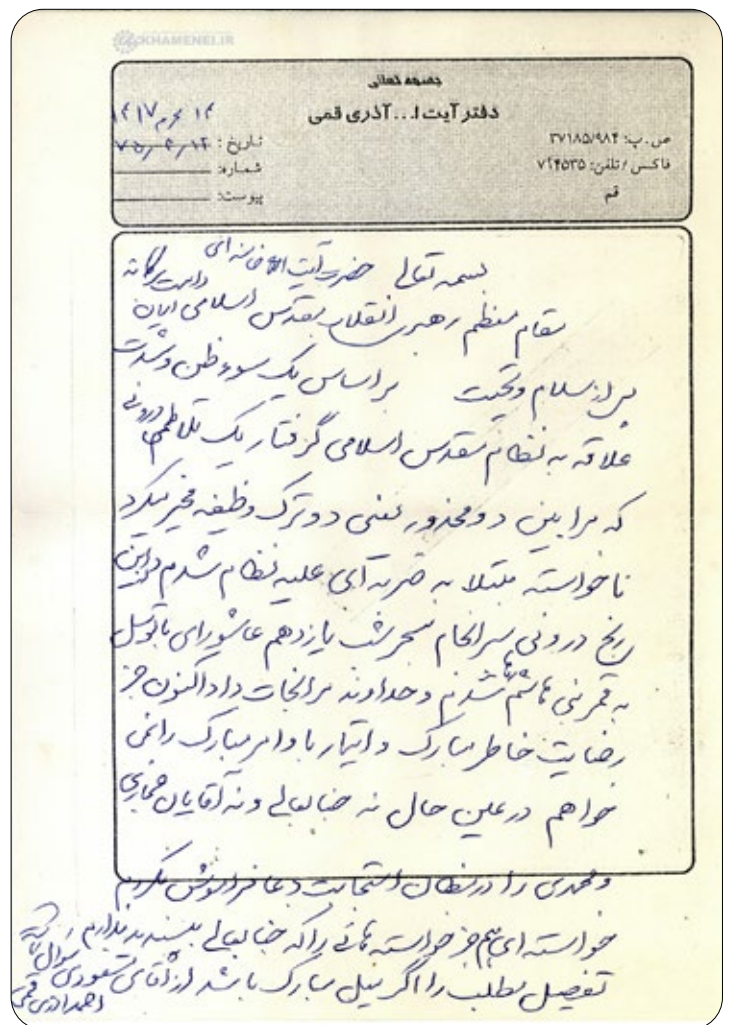 KHAMENEI.IR
بسمه تعالی
دفتر آیت ا... آذری قمی
۱۴ محرم ۱۴۱۷
ص.ب: ۳۷۱۸۵/۹۸۴
تاریخ : ۷۵/۳/۱۲
فاکس / تلفن: ۷۲۴۵۳۵
شماره:
قم
پیوست:
بسمه تعالی حضرت آیت الله خامنه ای دامت برکاته
مقام معظم رهبری انقلاب مقدس اسلامی ایران
پس از سلام و تحیت بر اساس یک سوء ظن و شدت
علاقه به نظام مقدس اسلامی گرفتار یک تلاطم درونی
که مرا بین دو محذور یعنی دو ترک وظیفه مخیر میکرد
ناخواسته مبتلا به ضربه ای علیه نظام شدم و این
رنج درونی سرانجام سحر شب یازدهم عاشورای با توسل
به قمر بنی هاشم شدم و خداوند مرا نجات داد اکنون جز
رضایت خاطر مبارک و ایتمار با وامر مبارک را نمی
خواهم در عین حال نه جنابعالی و نه آقایان حجازی
و محمدی را در مظان استجابت دعا فراموش نکردم
خواسته ای هم جز خواسته هائی را که جنابعالی بپسندید ندارم
تفصیل مطلب را اگر میل مبارک باشد از آقای مسعودی سوال
احمد آذری قمی